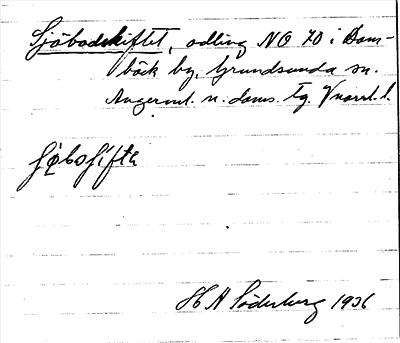 Sjöbodskiftet, odling NO 70 i Bans-
bäck by, Grundsunda sn.
Ångerml. n. doms. tg. Vnorrl. l.
H A Söderberg 1936